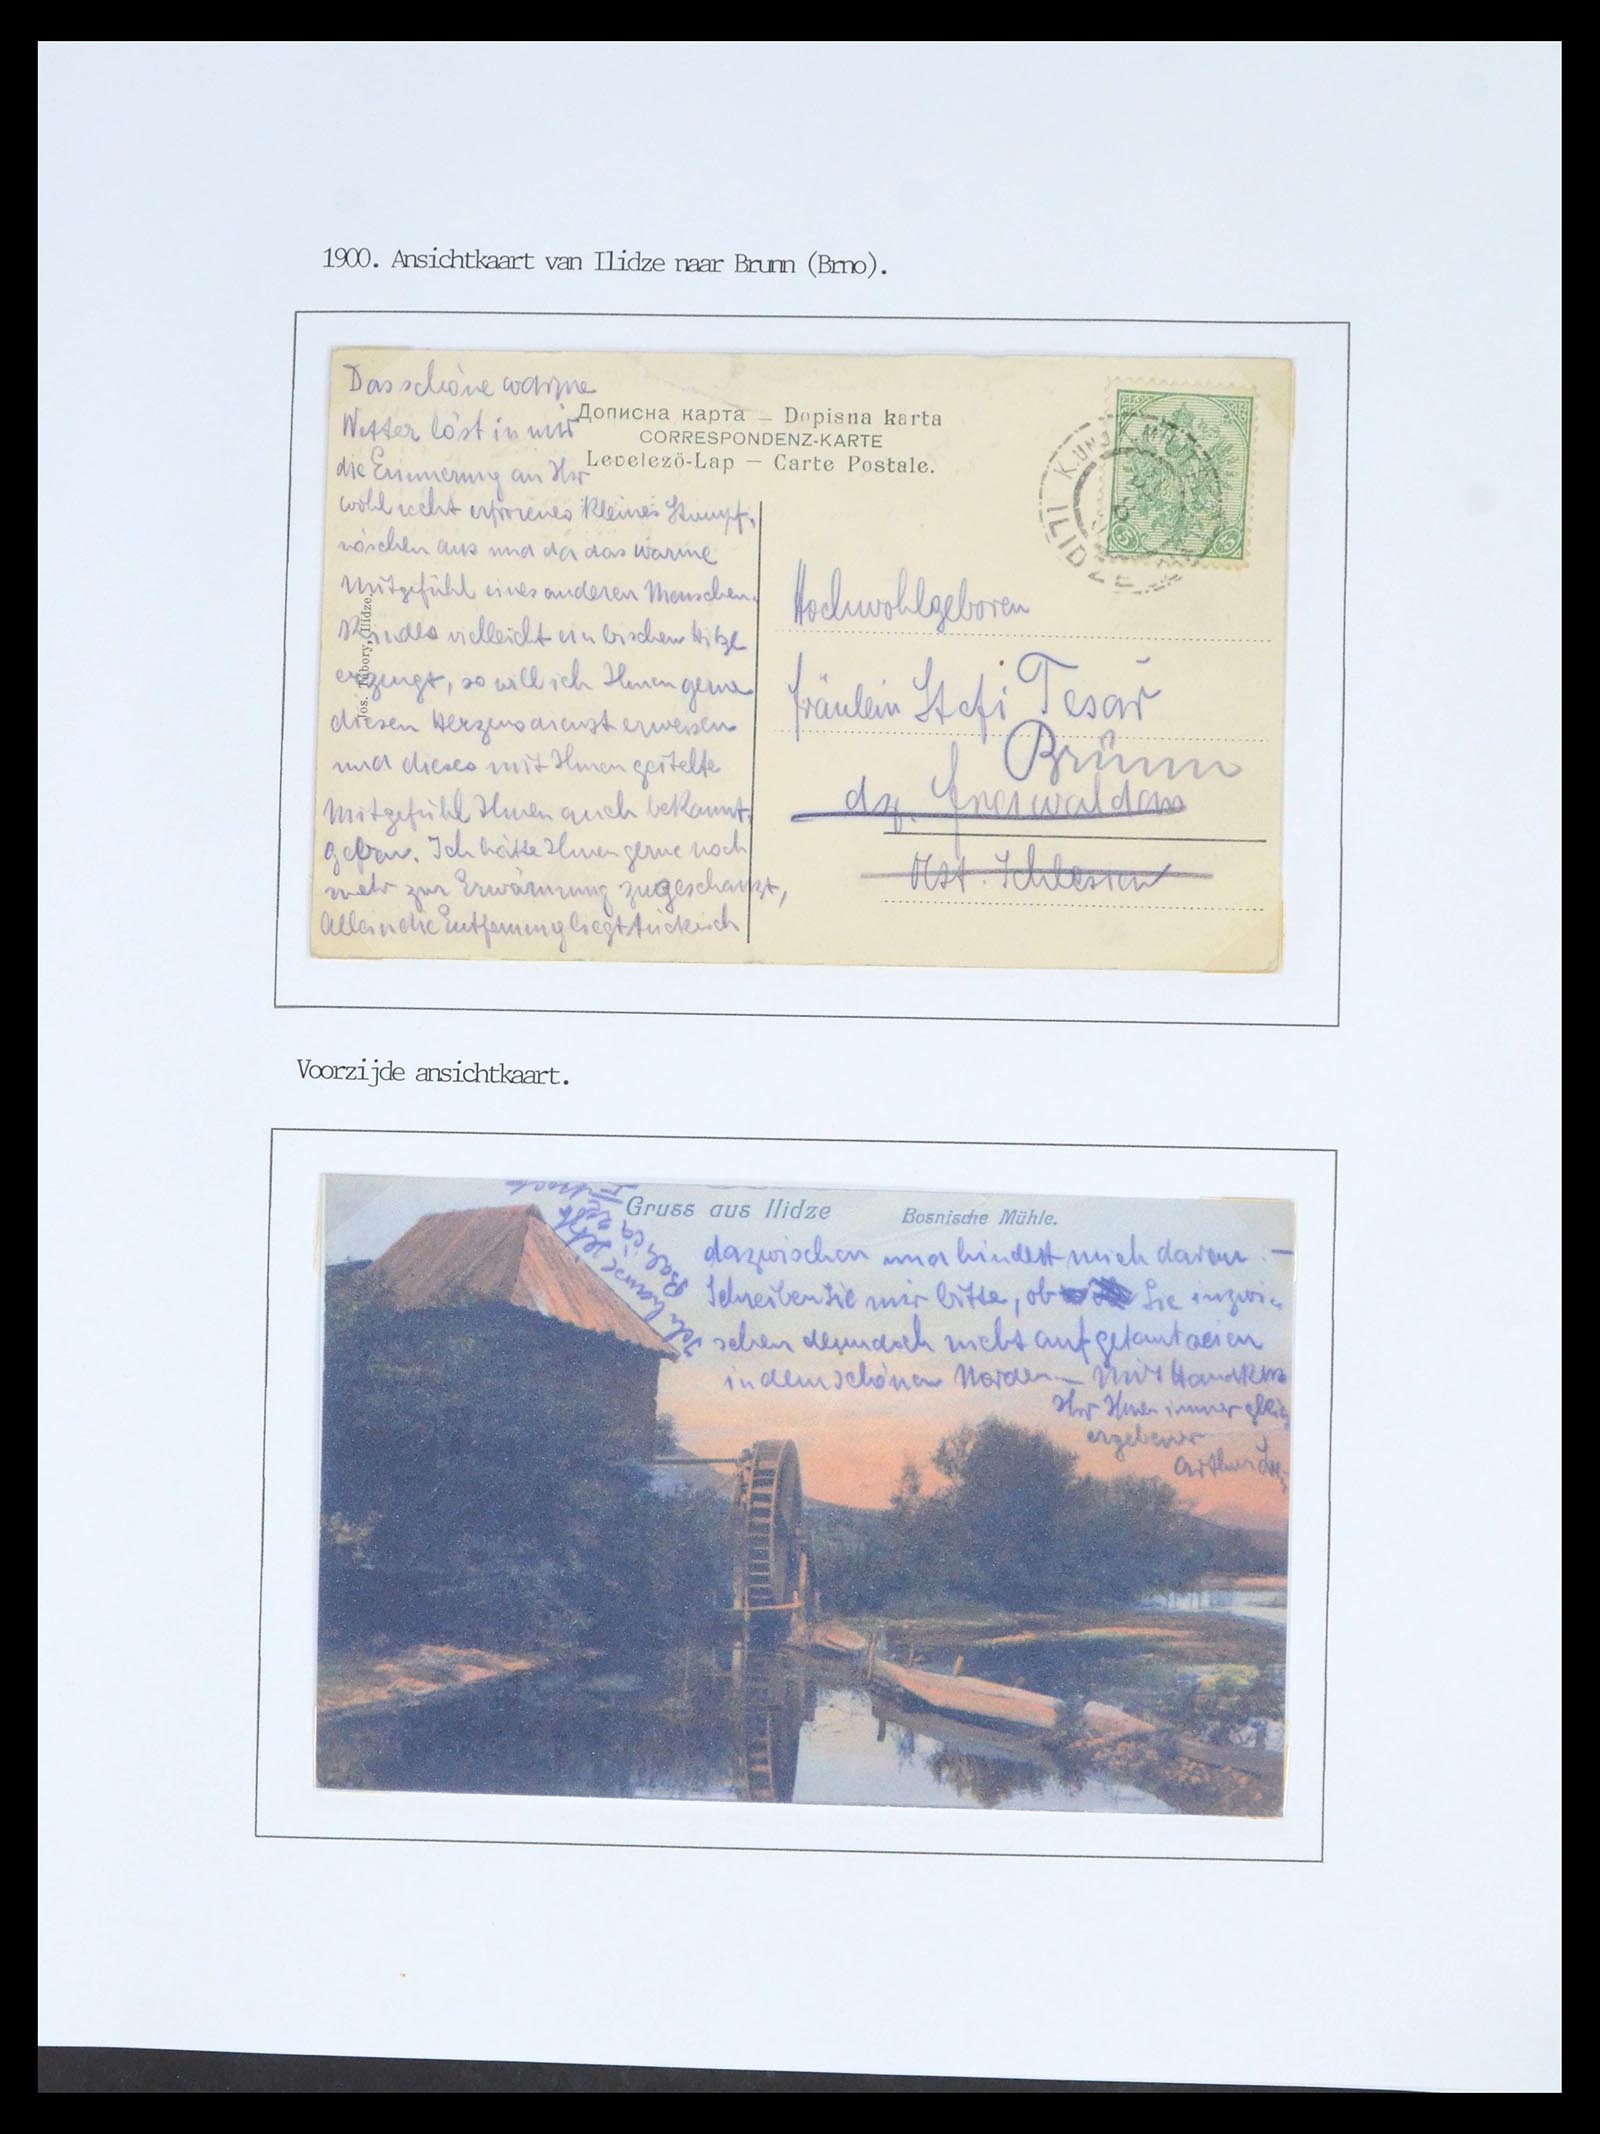 1900. Ansichtkaart van Ilidze naar Brunn (Brno).
Das schöne warme
Wetter löst in mir
die Erinnerung an Ihr
wohl recht erfrorenes kleines Stumpf-
nöschen aus und da das warme
Mitgefühl eines anderen Menschen-
Kindes vielleicht ein bischen Hitze
erzeugt, so will ich Ihnen gerne
diesen Herzensdienst erweisen
und dieses mit Ihnen geteilte
Mitgefühl Ihnen auch bekannt-
geben. Ich hätte Ihnen gerne noch
mehr zur Erwärmung zugeschanzt,
Allein die Entfernung liegt tückisch
Дописна карта — Dopisna karta
CORRESPONDENZ-KARTE
Levelező-Lap — Carte Postale.
Jos. Tabory, Ilidze.
K. UND K. MILIT. POST
ILIDZE
5 5
Hochwohlgeboren
Fräulein Stefi Tesař
Brünn
dz. Freiwaldau
Öst. Schlesien
Voorzijde ansichtkaart.
Gruss aus Ilidze
Bosnische Mühle.
dazwischen und hindert mich daran. —
Schreiben Sie mir bitte, ob Sie inzwi-
schen dennoch nicht aufgetaut seien
in dem schönen Norden — Mit Handkuss
Ihr Ihnen immer
ergebener
Arthur